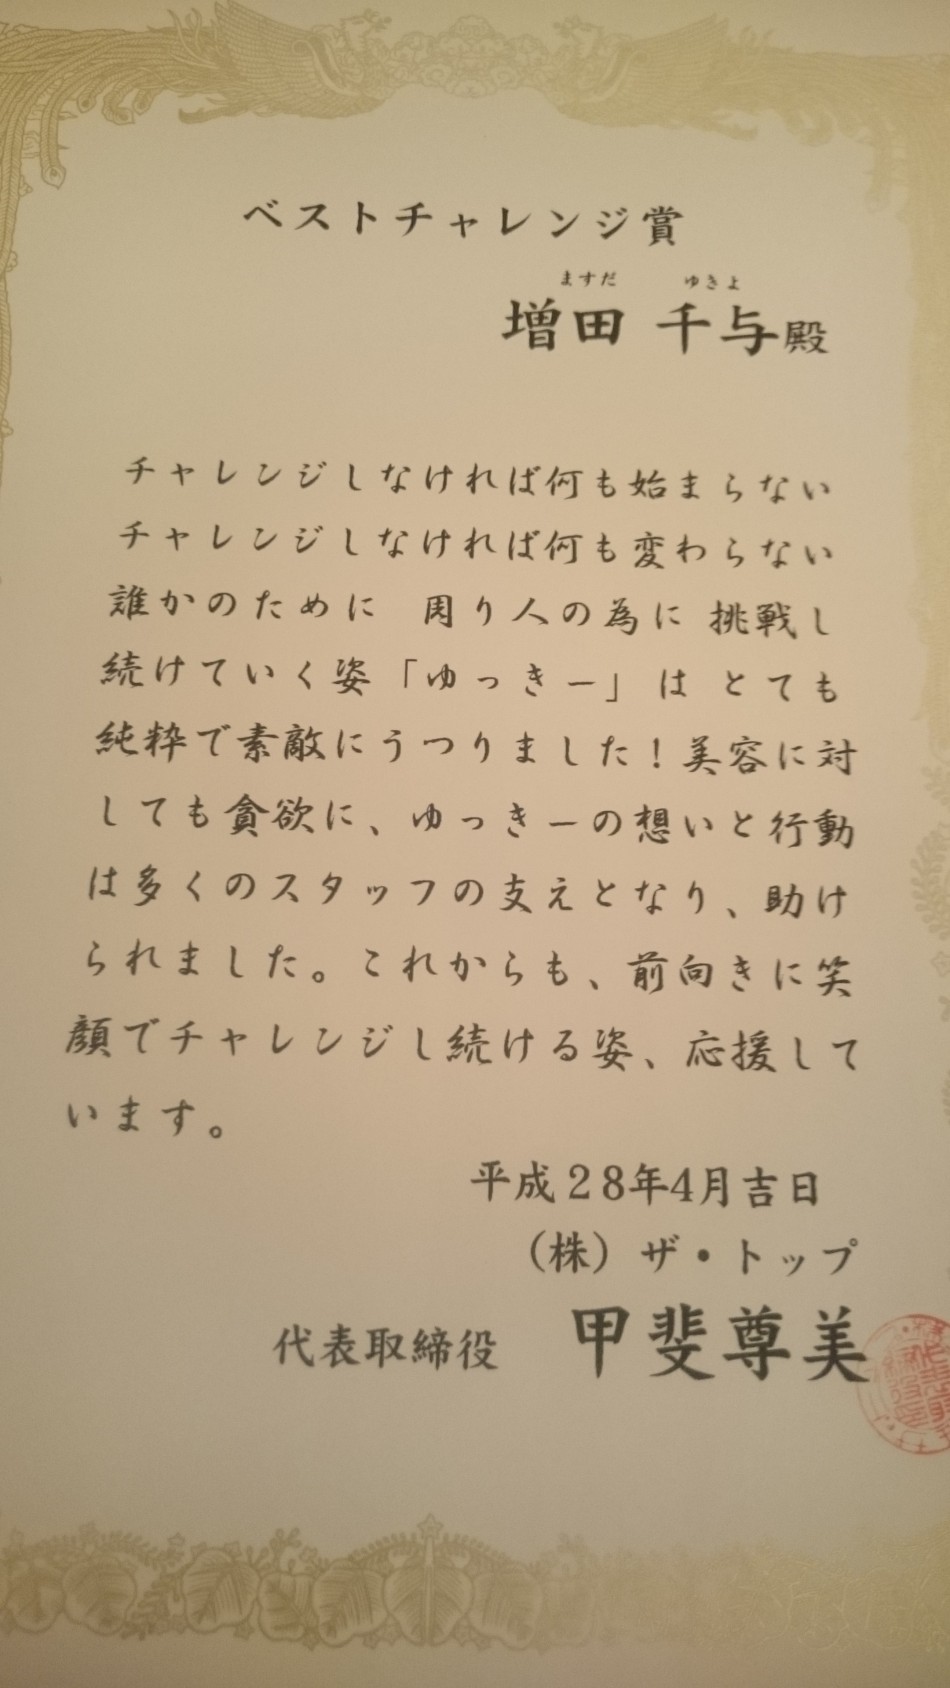 ベストチャレンジ賞
ますだ ゆきよ
増田 千与殿
チャレンジしなければ何も始まらない
チャレンジしなければ何も変わらない
誰かのために 周り人の為に 挑戦し
続けていく姿「ゆっきー」は とても
純粋で素敵にうつりました！美容に対
しても貪欲に、ゆっきーの想いと行動
は多くのスタッフの支えとなり、助け
られました。これからも、前向きに笑
顔でチャレンジし続ける姿、応援して
います。
平成28年4月吉日
（株）ザ・トップ
代表取締役 甲斐尊美